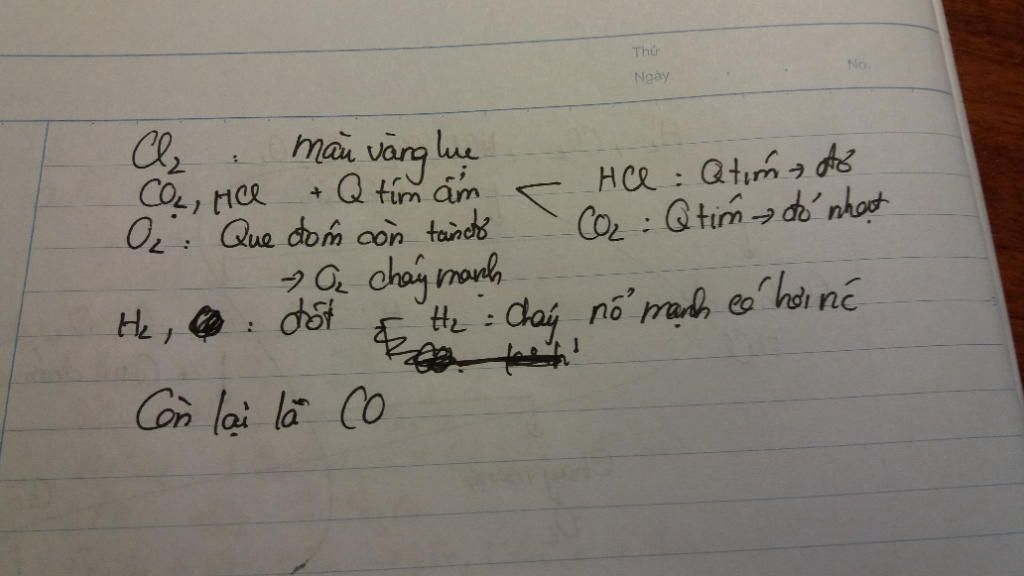 Thứ
Ngày . . No.
Cl₂ : màu vàng lục
CO₂, HCl + Q tím ẩm
HCl : Q tím → đỏ
CO₂ : Q tím → đỏ nhạt
O₂ : Que đóm còn tàn đỏ
→ O₂ cháy mạnh
H₂, : đốt
H₂ : cháy nổ mạnh có hơi nc
Còn lại là CO